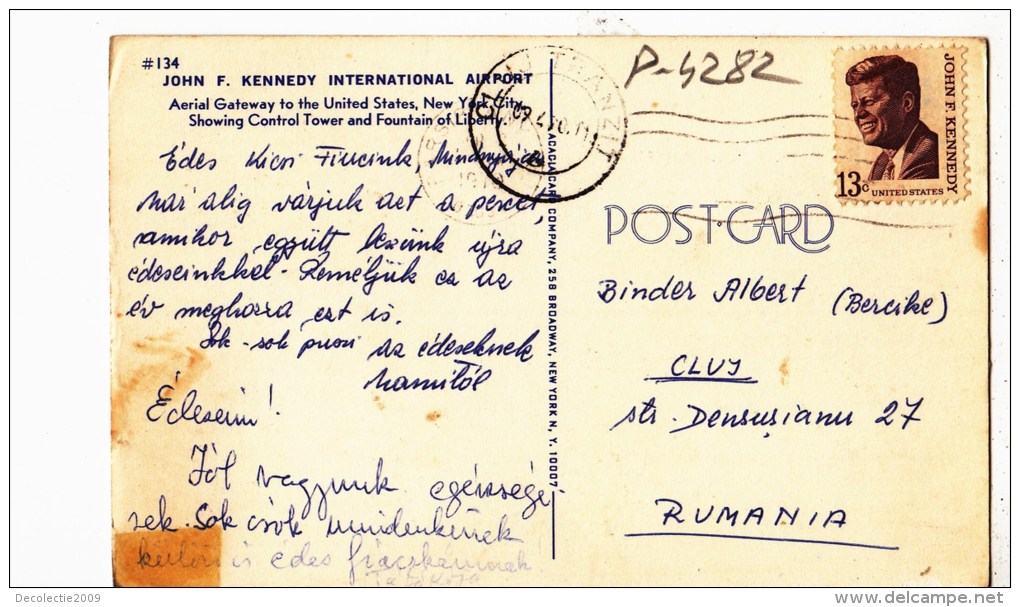 #134
JOHN F. KENNEDY INTERNATIONAL AIRPORT
Aerial Gateway to the United States, New York City.
Showing Control Tower and Fountain of Liberty.
Édes Kicsi Fiucink, Mindnyáján
már alig várjuk azt a percet,
amikor együtt leszünk újra
édeseinkkel. Reméljük ez az
év meghozza ezt is.
Sok-sok puszi az édeseknek
Mamitól
Édeseim!
Jól vagyunk egészsége-
sek. Sok csók mindenkinek
külön is édes
ACACIA CARD COMPANY, 258 BROADWAY, NEW YORK N. Y. 10007
P-4282
JOHN F. KENNEDY
13c UNITED STATES
POST-CARD
Binder Albert (Bercike)
CLUJ
str. Densuşianu 27
RUMANIA
Colectie2009
delcampe.net